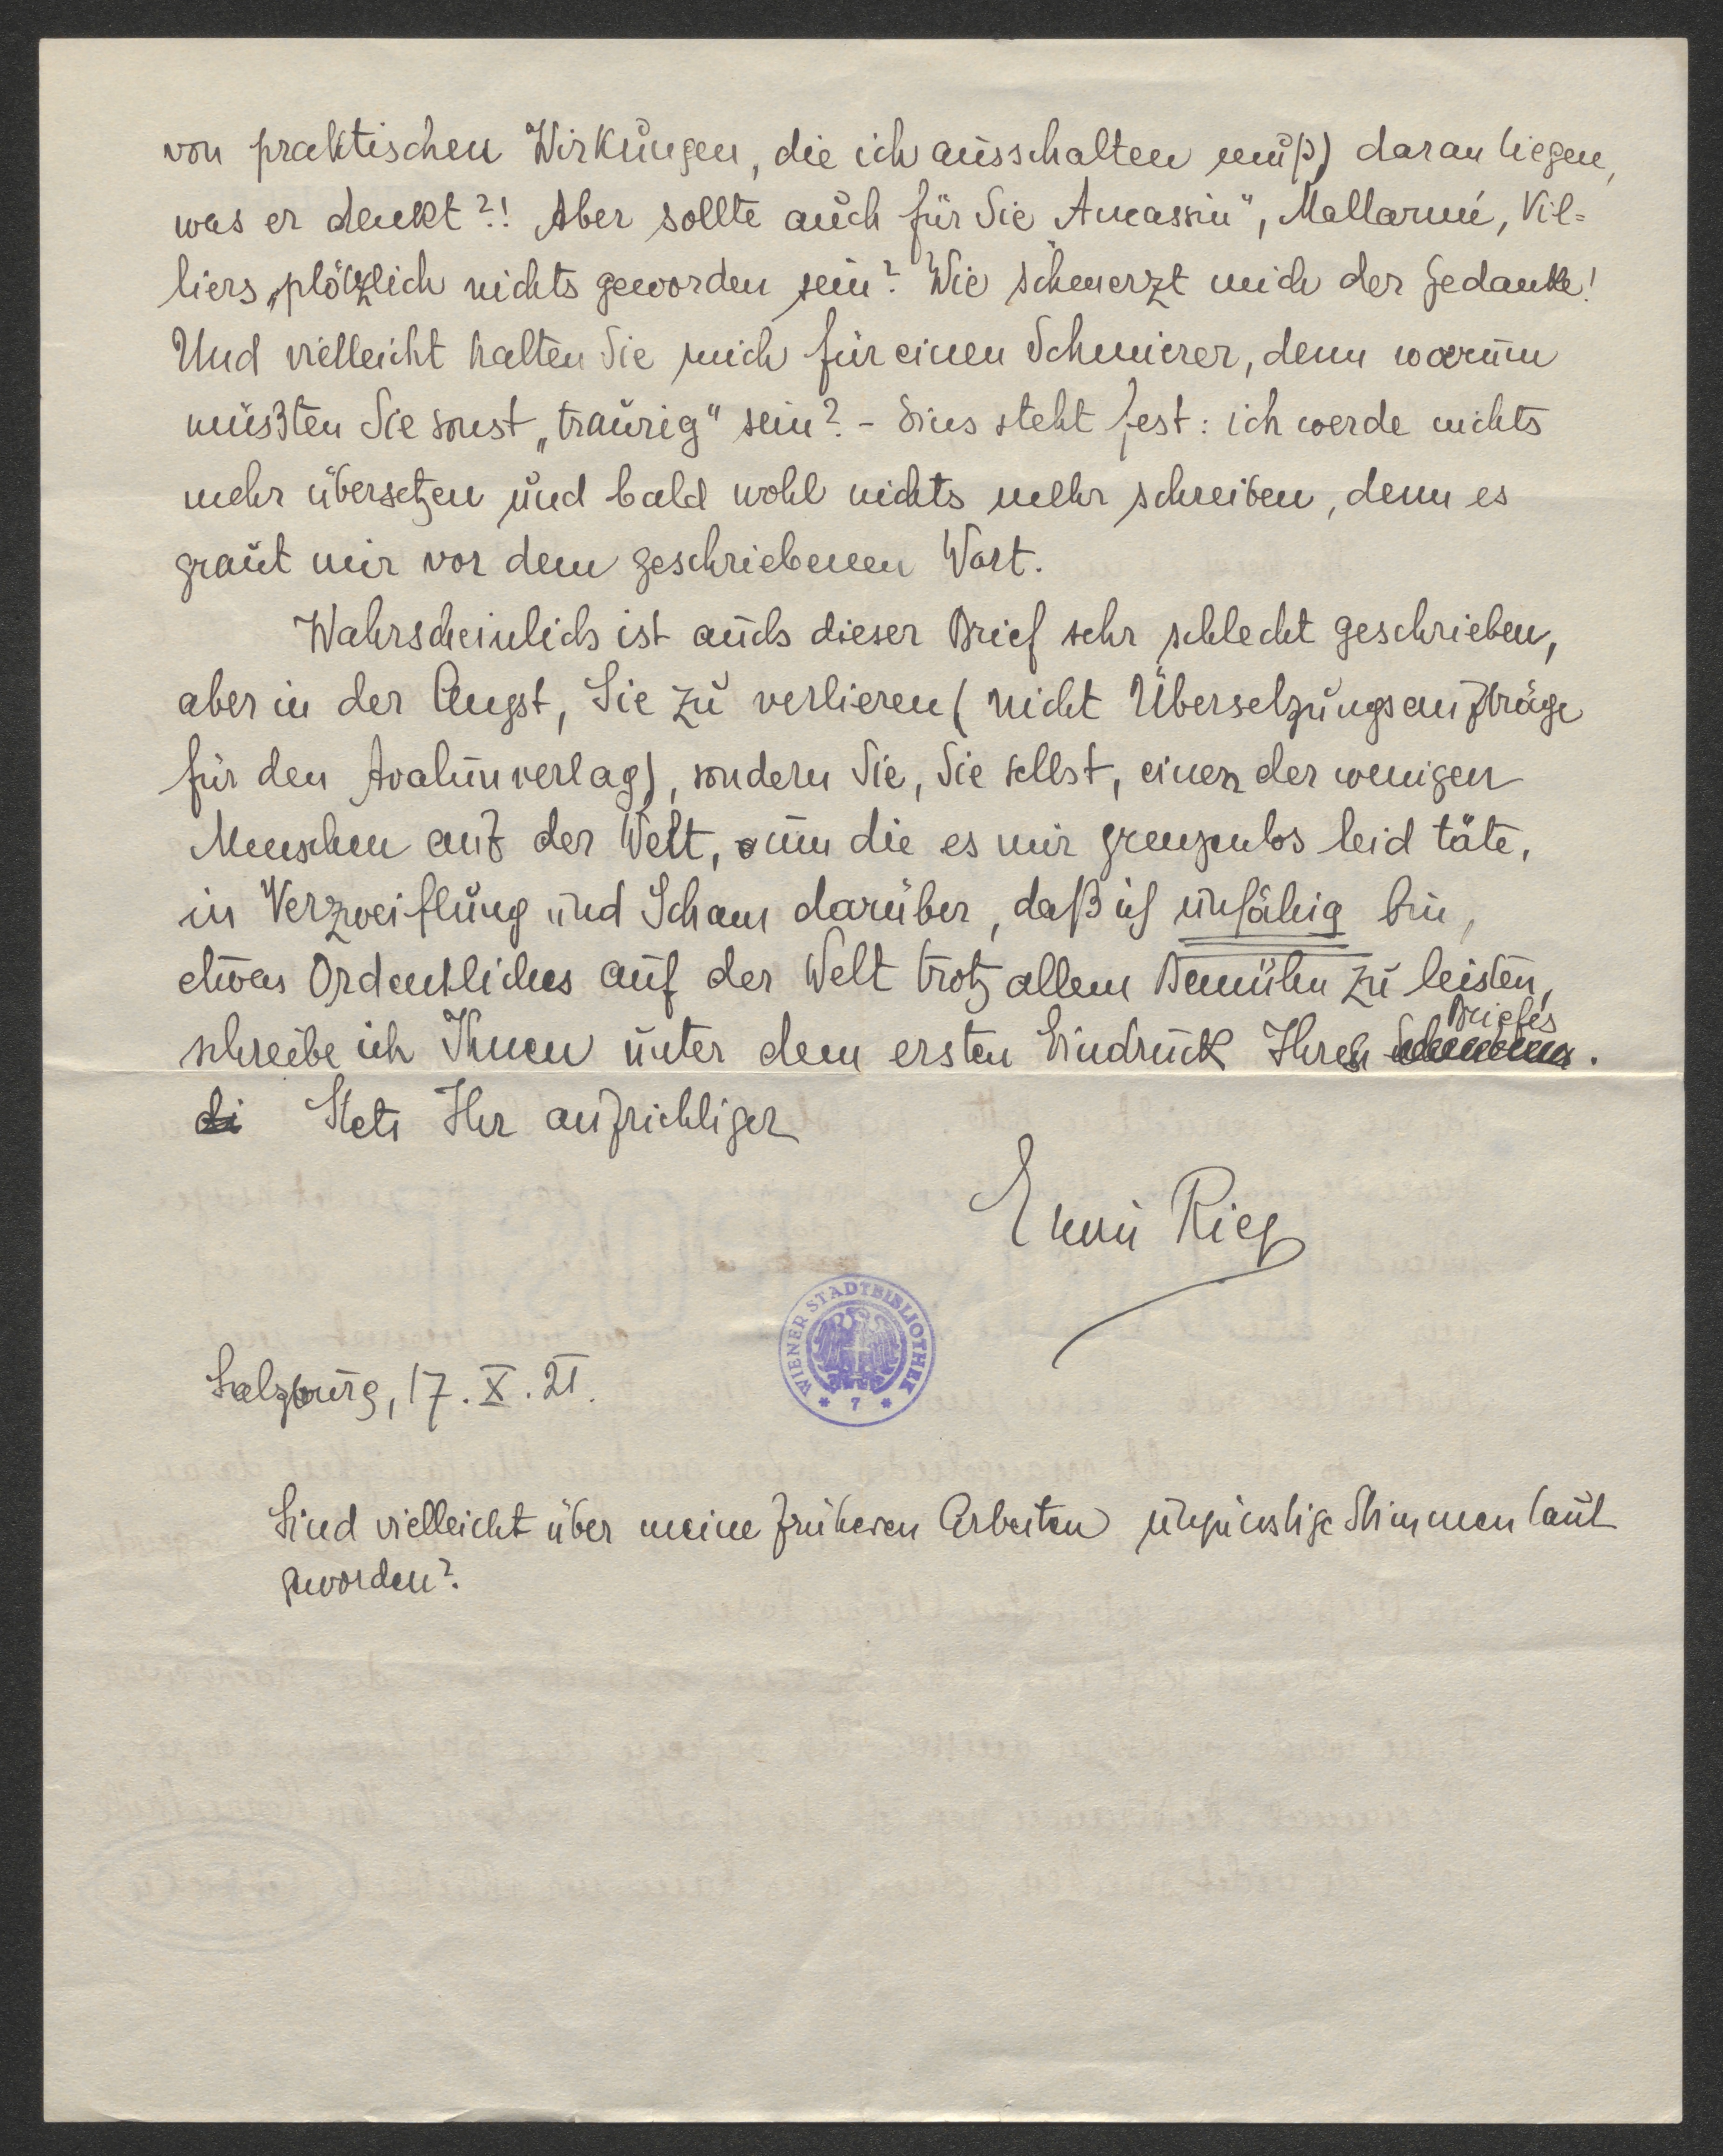 von praktischen Wirkungen, die ich ausschalten muß) daran liegen,
was er denkt?! Aber sollte auch für Sie Aucassin", Mallarmé, Vil=
liers „plötzlich nichts geworden sein? Wie schmerzt mich der Gedanke!
Und vielleicht halten Sie mich für einen Schmierer, denn warum
müßten Sie sonst „traurig" sein? - Eins steht fest: ich werde nichts
mehr übersetzen und bald wohl nichts mehr schreiben, denn es
graut mir vor dem geschriebenen Wort.
Wahrscheinlich ist auch dieser Brief sehr schlecht geschrieben,
aber in der Angst, Sie zu verlieren (nicht Übersetzungsaufträge
für den Avalunverlag), sondern Sie, Sie selbst, einen der wenigen
Menschen auf der Welt, um die es mir grenzenlos leid täte,
in Verzweiflung und Scham darüber, daß ich unfähig bin,
etwas Ordentliches auf der Welt trotz allem Bemühn zu leisten,
schreibe ich Ihnen unter dem ersten Eindruck Ihres Briefes.
di Stets Ihr aufrichtiger
Erwin Rieg
WIENER STADTBIBLIOTHEK
* 7 *
Salzburg, 17. X. 21.
Sind vielleicht über meine früheren Arbeiten ungünstige Stimmen laut
geworden?